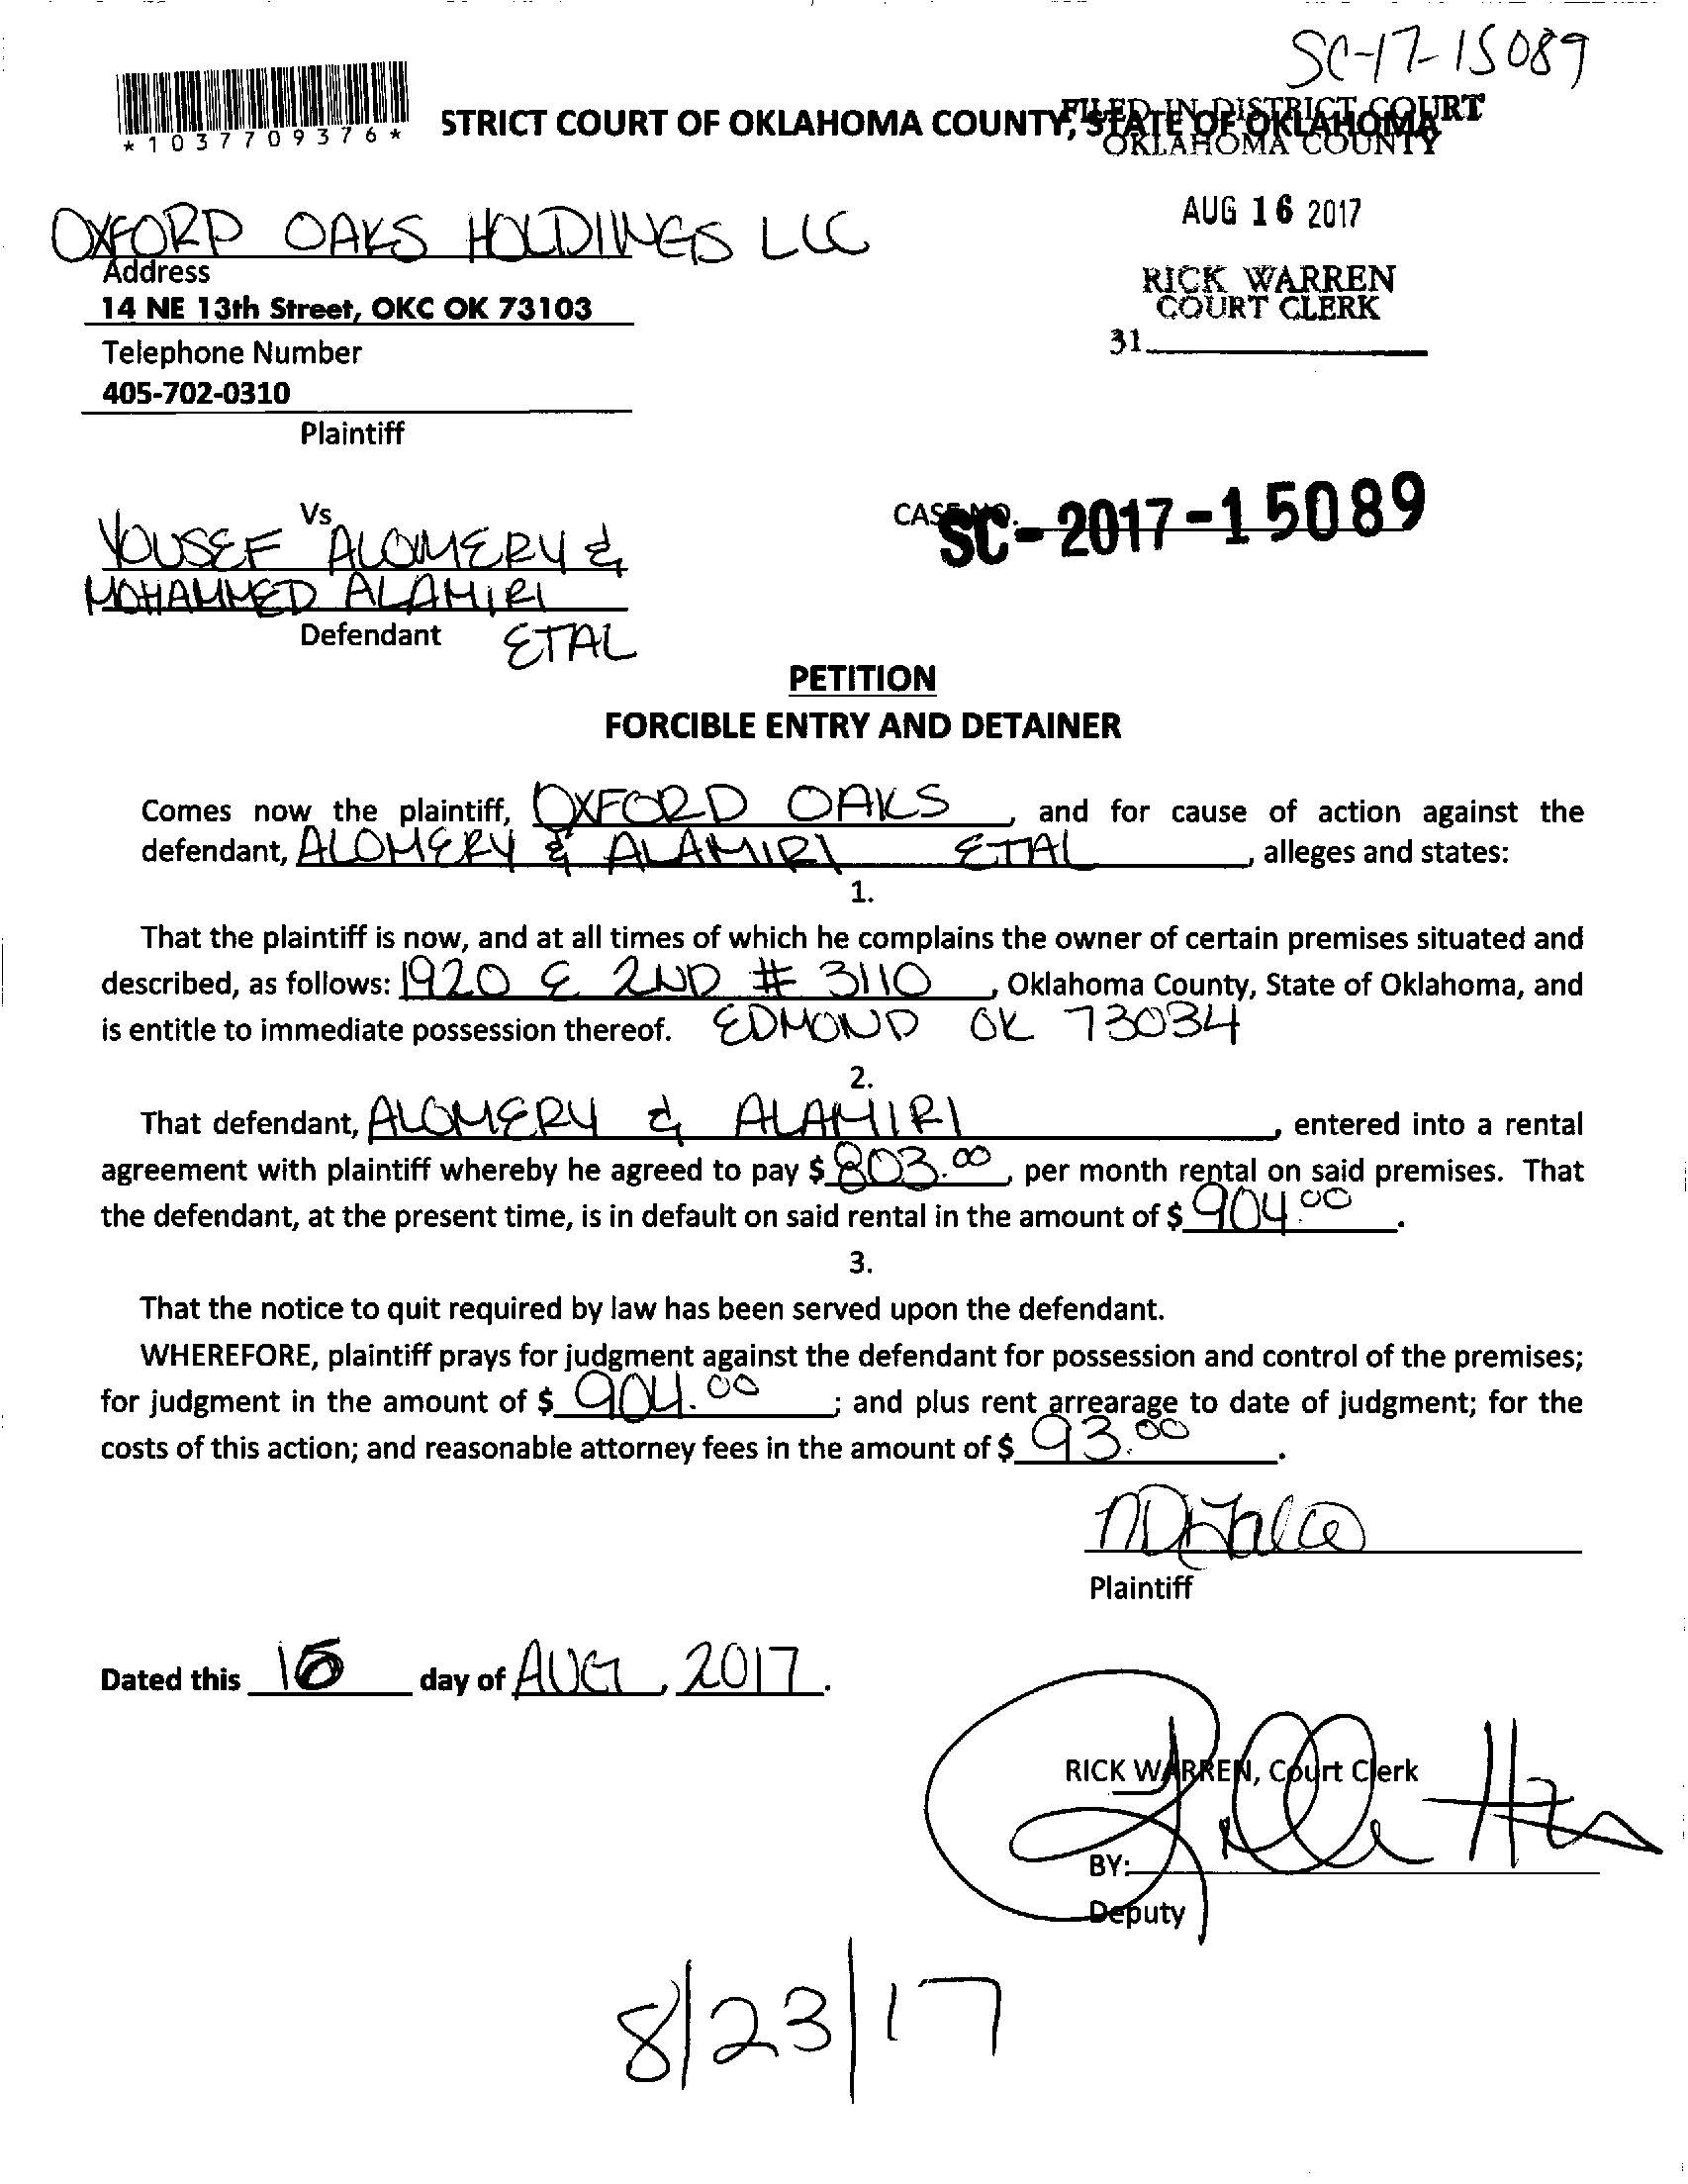 SC-17-15089
*1037709376*
STRICT COURT OF OKLAHOMA COUNTY, STATE OF OKLAHOMA
FILED IN DISTRICT COURT
OKLAHOMA COUNTY
OXFORD OAKS HOLDINGS LLC
AUG 16 2017
Address
RICK WARREN
14 NE 13th Street, OKC OK 73103
COURT CLERK
Telephone Number
31
405-702-0310
Plaintiff
Vs
CASE NO.
SC-2017-15089
YOUSEF ALOMERY &
MOHAMMED ALAMIRI
Defendant ETAL
PETITION
FORCIBLE ENTRY AND DETAINER
Comes now the plaintiff, OXFORD OAKS, and for cause of action against the
defendant, ALOMERY & ALAMIRI ETAL, alleges and states:
1.
That the plaintiff is now, and at all times of which he complains the owner of certain premises situated and
described, as follows: 1920 E 2ND # 3110, Oklahoma County, State of Oklahoma, and
is entitle to immediate possession thereof. EDMOND OK 73034
2.
That defendant, ALOMERY & ALAMIRI, entered into a rental
agreement with plaintiff whereby he agreed to pay $ 803.00, per month rental on said premises. That
the defendant, at the present time, is in default on said rental in the amount of $ 904.00.
3.
That the notice to quit required by law has been served upon the defendant.
WHEREFORE, plaintiff prays for judgment against the defendant for possession and control of the premises;
for judgment in the amount of $ 904.00; and plus rent arrearage to date of judgment; for the
costs of this action; and reasonable attorney fees in the amount of $ 93.00.
Plaintiff
Dated this day of AUG, 2017.
RICK WARREN, Court Clerk
BY:
Deputy
8/23/17